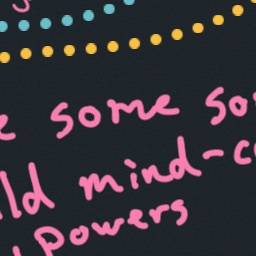 e some so
ld mind-c
powers